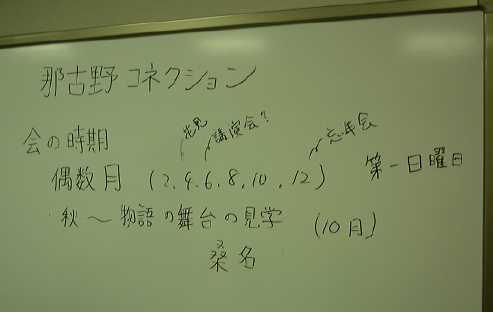 那古野コネクション
会の時期
花見 講演会? 忘年会
偶数月 (2.4.6.8.10.12) 第一日曜日
秋〜物語の舞台の見学 (10月)
桑名